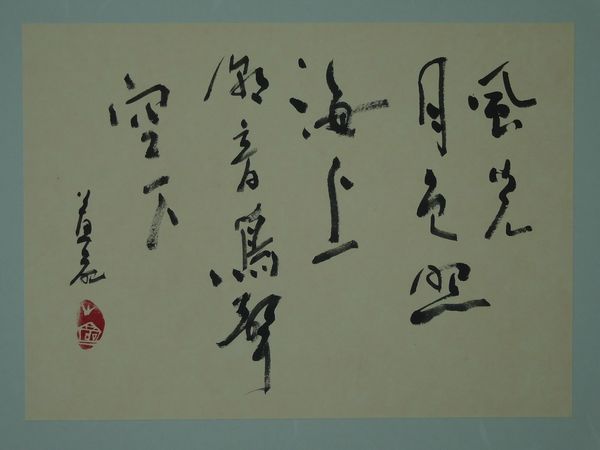 風光
月色照
海上
潮音鳥聲
空下